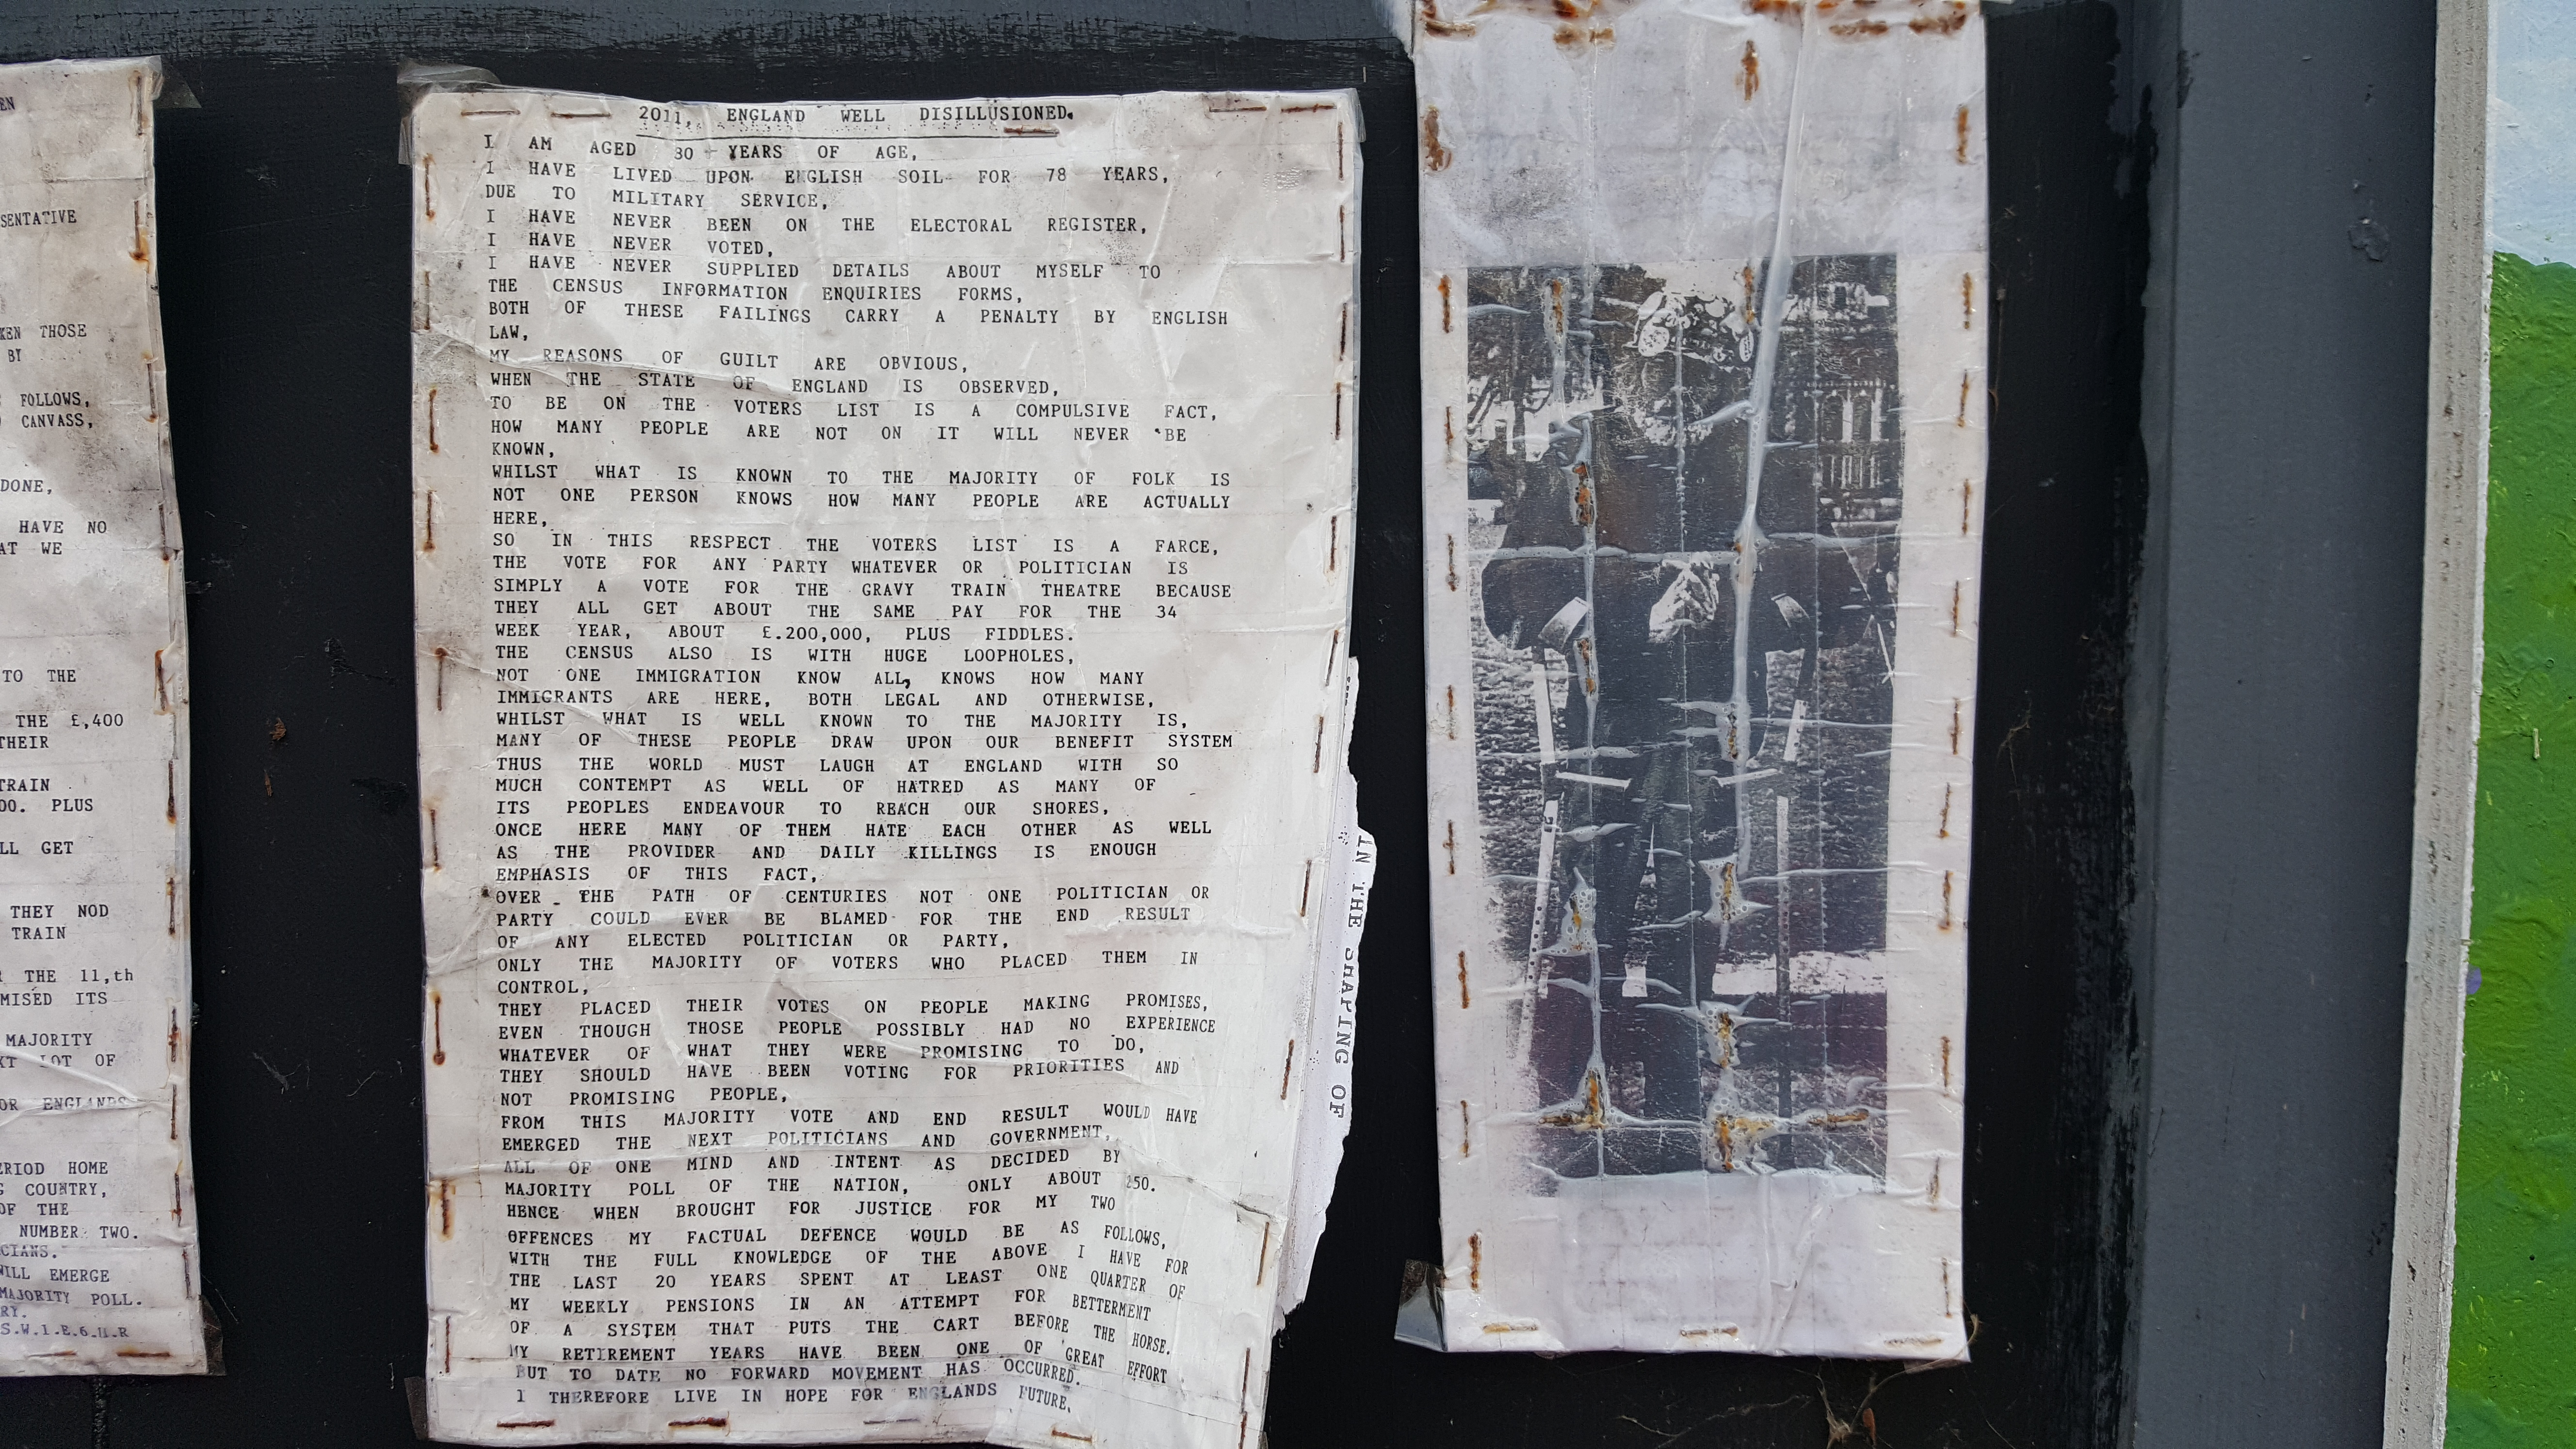 EN
SENTATIVE
KEN THOSE
BY
FOLLOWS,
CANVASS,
DONE,
HAVE NO
AT WE
TO THE
THE £,400
THEIR
TRAIN
00. PLUS
LL GET
THEY NOD
TRAIN
THE 11,th
MISED ITS
MAJORITY
XT LOT OF
OR ENGLANDS
ERIOD HOME
G COUNTRY,
OF THE
NUMBER TWO.
CIANS.
WILL EMERGE
MAJORITY POLL.
RY.
S.W.1.E.6.H.R
2011, ENGLAND WELL DISILLUSIONED.
I AM AGED 80 YEARS OF AGE,
I HAVE LIVED UPON ENGLISH SOIL FOR 78 YEARS,
DUE TO MILITARY SERVICE,
I HAVE NEVER BEEN ON THE ELECTORAL REGISTER,
I HAVE NEVER VOTED,
I HAVE NEVER SUPPLIED DETAILS ABOUT MYSELF TO
THE CENSUS INFORMATION ENQUIRIES FORMS,
BOTH OF THESE FAILINGS CARRY A PENALTY BY ENGLISH
LAW,
MY REASONS OF GUILT ARE OBVIOUS,
WHEN THE STATE OF ENGLAND IS OBSERVED,
TO BE ON THE VOTERS LIST IS A COMPULSIVE FACT,
HOW MANY PEOPLE ARE NOT ON IT WILL NEVER BE
KNOWN,
WHILST WHAT IS KNOWN TO THE MAJORITY OF FOLK IS
NOT ONE PERSON KNOWS HOW MANY PEOPLE ARE ACTUALLY
HERE,
SO IN THIS RESPECT THE VOTERS LIST IS A FARCE,
THE VOTE FOR ANY PARTY WHATEVER OR POLITICIAN IS
SIMPLY A VOTE FOR THE GRAVY TRAIN THEATRE BECAUSE
THEY ALL GET ABOUT THE SAME PAY FOR THE 34
WEEK YEAR, ABOUT £.200,000, PLUS FIDDLES.
THE CENSUS ALSO IS WITH HUGE LOOPHOLES,
NOT ONE IMMIGRATION KNOW ALL, KNOWS HOW MANY
IMMIGRANTS ARE HERE, BOTH LEGAL AND OTHERWISE,
WHILST WHAT IS WELL KNOWN TO THE MAJORITY IS,
MANY OF THESE PEOPLE DRAW UPON OUR BENEFIT SYSTEM
THUS THE WORLD MUST LAUGH AT ENGLAND WITH SO
MUCH CONTEMPT AS WELL OF HATRED AS MANY OF
ITS PEOPLES ENDEAVOUR TO REACH OUR SHORES,
ONCE HERE MANY OF THEM HATE EACH OTHER AS WELL
AS THE PROVIDER AND DAILY KILLINGS IS ENOUGH
EMPHASIS OF THIS FACT,
OVER THE PATH OF CENTURIES NOT ONE POLITICIAN OR
PARTY COULD EVER BE BLAMED FOR THE END RESULT
OF ANY ELECTED POLITICIAN OR PARTY,
ONLY THE MAJORITY OF VOTERS WHO PLACED THEM IN
CONTROL,
THEY PLACED THEIR VOTES ON PEOPLE MAKING PROMISES,
EVEN THOUGH THOSE PEOPLE POSSIBLY HAD NO EXPERIENCE
WHATEVER OF WHAT THEY WERE PROMISING TO DO,
THEY SHOULD HAVE BEEN VOTING FOR PRIORITIES AND
NOT PROMISING PEOPLE,
FROM THIS MAJORITY VOTE AND END RESULT WOULD HAVE
EMERGED THE NEXT POLITICIANS AND GOVERNMENT,
ALL OF ONE MIND AND INTENT AS DECIDED BY
MAJORITY POLL OF THE NATION, ONLY ABOUT 250.
HENCE WHEN BROUGHT FOR JUSTICE FOR MY TWO
OFFENCES MY FACTUAL DEFENCE WOULD BE AS FOLLOWS,
WITH THE FULL KNOWLEDGE OF THE ABOVE I HAVE FOR
THE LAST 20 YEARS SPENT AT LEAST ONE QUARTER OF
MY WEEKLY PENSIONS IN AN ATTEMPT FOR BETTERMENT
OF A SYSTEM THAT PUTS THE CART BEFORE THE HORSE.
MY RETIREMENT YEARS HAVE BEEN ONE OF GREAT EFFORT
BUT TO DATE NO FORWARD MOVEMENT HAS OCCURRED.
I THEREFORE LIVE IN HOPE FOR ENGLANDS FUTURE.
IN THE SHAPING OF